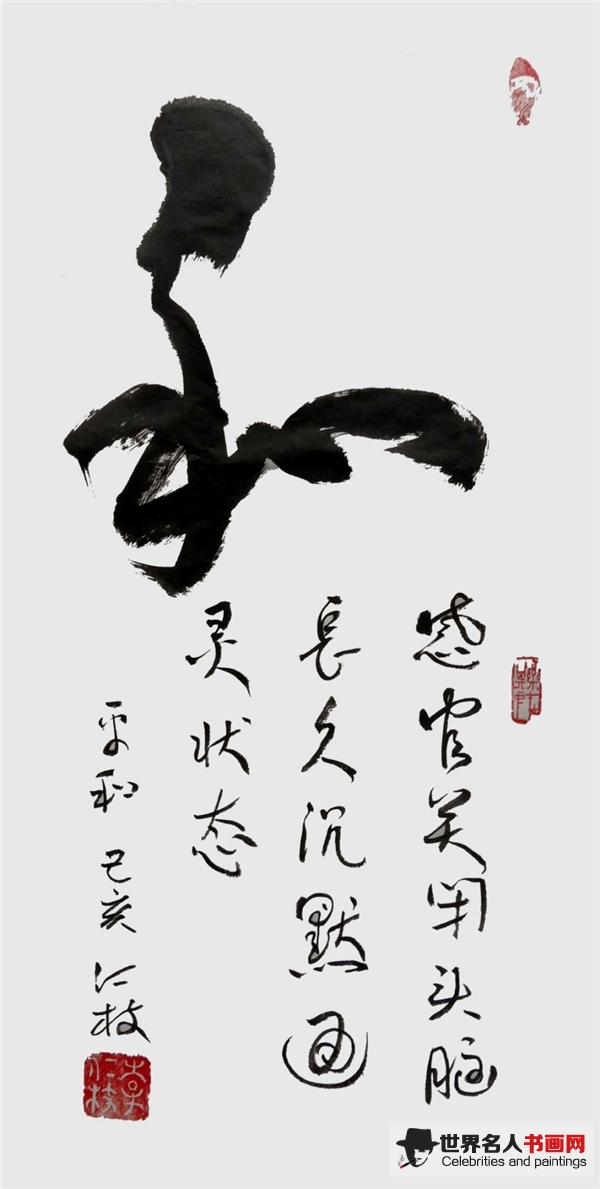 和
感官关闭头脑
长久沉默通
灵状态
平和 己亥 仁枝
李仁枝
世界名人书画网
Celebrities and paintings